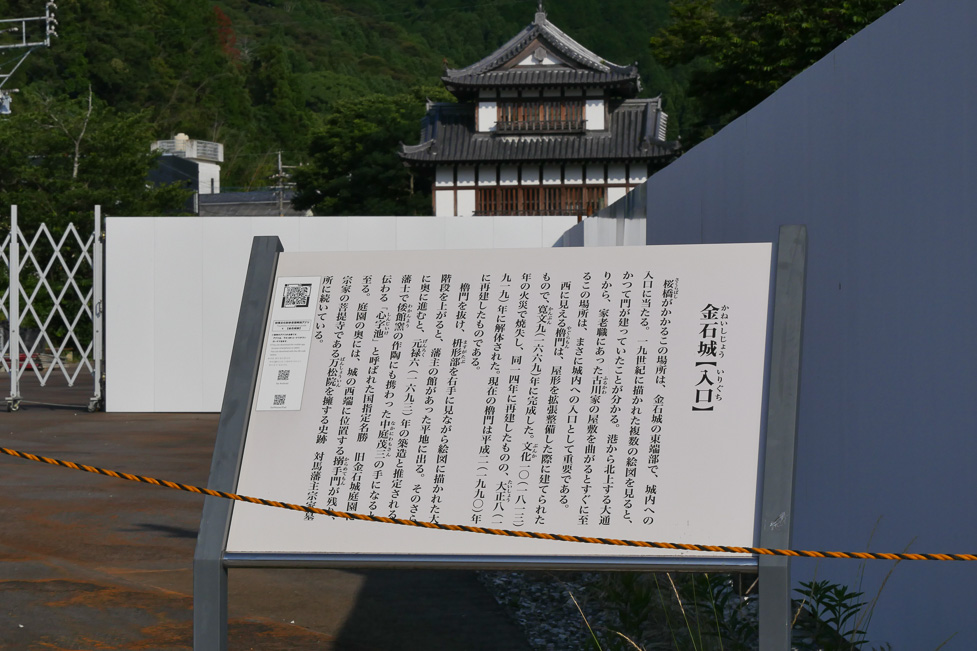 金石城【入口】
かねいしじょう いりぐち
桜橋がかかるこの場所は、金石城の東端部で、城内への
さくらばし
入口に当たる。一九世紀に描かれた複数の絵図を見ると、
かつて門が建っていたことが分かる。港から北上する大通
りから、家老職にあった古川家の屋敷を曲がるとすぐに至
ふるかわ
るこの場所は、まさに城内への入口として重要である。
西に見える櫓門は、屋形を拡張整備した際に建てられた
やぐらもん
もので、寛文九(一六六九)年に完成した。文化一〇(一八一三)
かんぶん ぶんか
年の火災で焼失し、同一四年に再建したものの、大正八(一
たいしょう
九一九)年に解体された。現在の櫓門は平成二(一九九〇)年
に再建したものである。
櫓門を抜け、枡形部を右手に見ながら絵図に描かれた大
ますがたぶ
階段を上がると、藩主の館があった平地に出る。そのさら
に奥に進むと、元禄六(一六九三)年の築造と推定される
げんろく
藩士で倭館窯の作陶にも携わった中庭茂三の手になると
わかんよう なかにわもさん
伝わる「心字池」と呼ばれた国指定名勝 旧金石城庭園に
しんじいけ
至る。庭園の奥には、城の西端に位置する搦手門が残り、
からめてもん
宗家の菩提寺である万松院を擁する史跡 対馬藩主宗家墓
ばんしょういん
所に続いている。